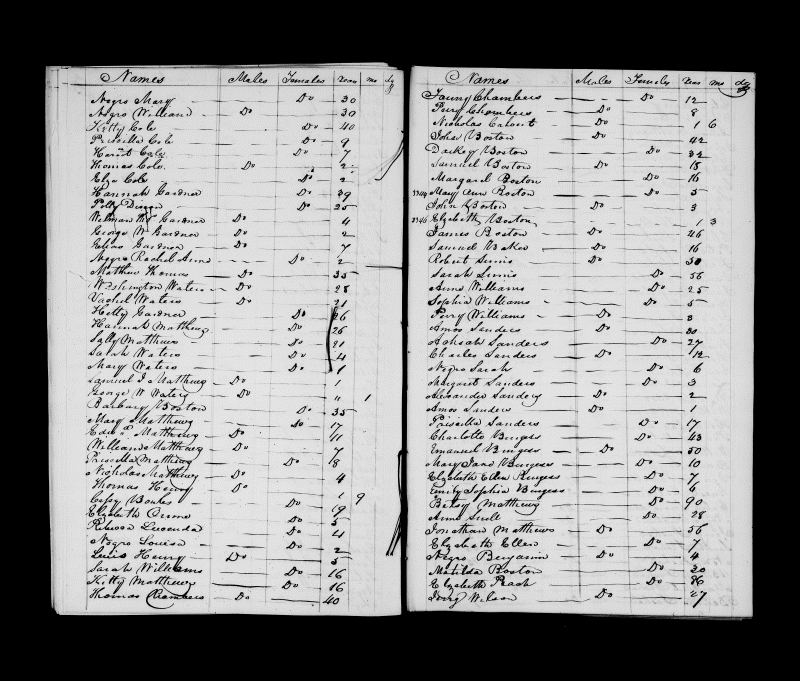 Names Males Females Years mo dy
Negro Mary Do 30
Negro William Do 30
Kitty Cole Do 40
Priscilla Cole Do 9
Harriet Cole Do 7
Thomas Cole Do 2
Eliza Cole Do 2
Hannah Gardner Do 39
Polly Dixon Do 25
Gardner Do 4
George W Gardner Do 2
Gardner Do 7
Negro Rachel Anne Do 2
Matthew Thomas Do 35
Washington Waters Do 28
Vachel Waters Do 21
Hetty Gardner Do 26
Hannah Matthews Do 26
Sally Matthews Do 21
Sarah Waters Do 4
Mary Waters Do 1
Samuel J Matthews Do 1
George W Waters Do " 1
Barbary Boston Do 35
Mary Matthews Do 17
Edwd Matthews Do 11
William Matthews Do 7
Priscilla Matthews Do 8
Nicholas Matthews Do 4
Thomas Henry Do 1 9
Do 19
Elizabeth Do 5
Rebecca Lucenda Do 4
Negro Louisa Do 2
Lewis Henry Do 5
Sarah Williams Do 16
Kitty Matthews Do 16
Thomas Chambers Do 40
Names Males Females Years mo dy
Fanny Chambers Do 12
Perry Chambers Do 8
Nicholas Calvert Do 1 6
John Boston Do 42
Boston Do 32
Samuel Boston Do 18
Margaret Boston Do 16
Mary Ann Boston Do 5
John Boston 3
Elizabeth Boston 1 3
James Boston Do 46
Samuel Baker Do 16
Robert Do 50
Sarah Do 56
Anne Williams Do 25
Sophia Williams Do 5
Perry Williams Do 3
Amos Sanders Do 30
Achsah Sanders Do 27
Charles Sanders Do 12
Negro Sarah Do 6
Margaret Sanders Do 3
Alexander Sanders Do 2
Amos Sanders Do 1
Priscilla Sanders Do 17
Charlotte Burgess Do 43
Emanuel Burgess Do 50
Mary Jane Burgess Do 10
Elizabeth Ellen Burgess Do 7
Emily Sophia Burgess Do 6
Betsy Matthews Do 90
Anne Do 28
Jonathan Matthews Do 56
Elizabeth Ellen Do 7
Negro Benjamin Do 4
Matilda Boston Do 30
Elizabeth Do 26
Wilson Do 27